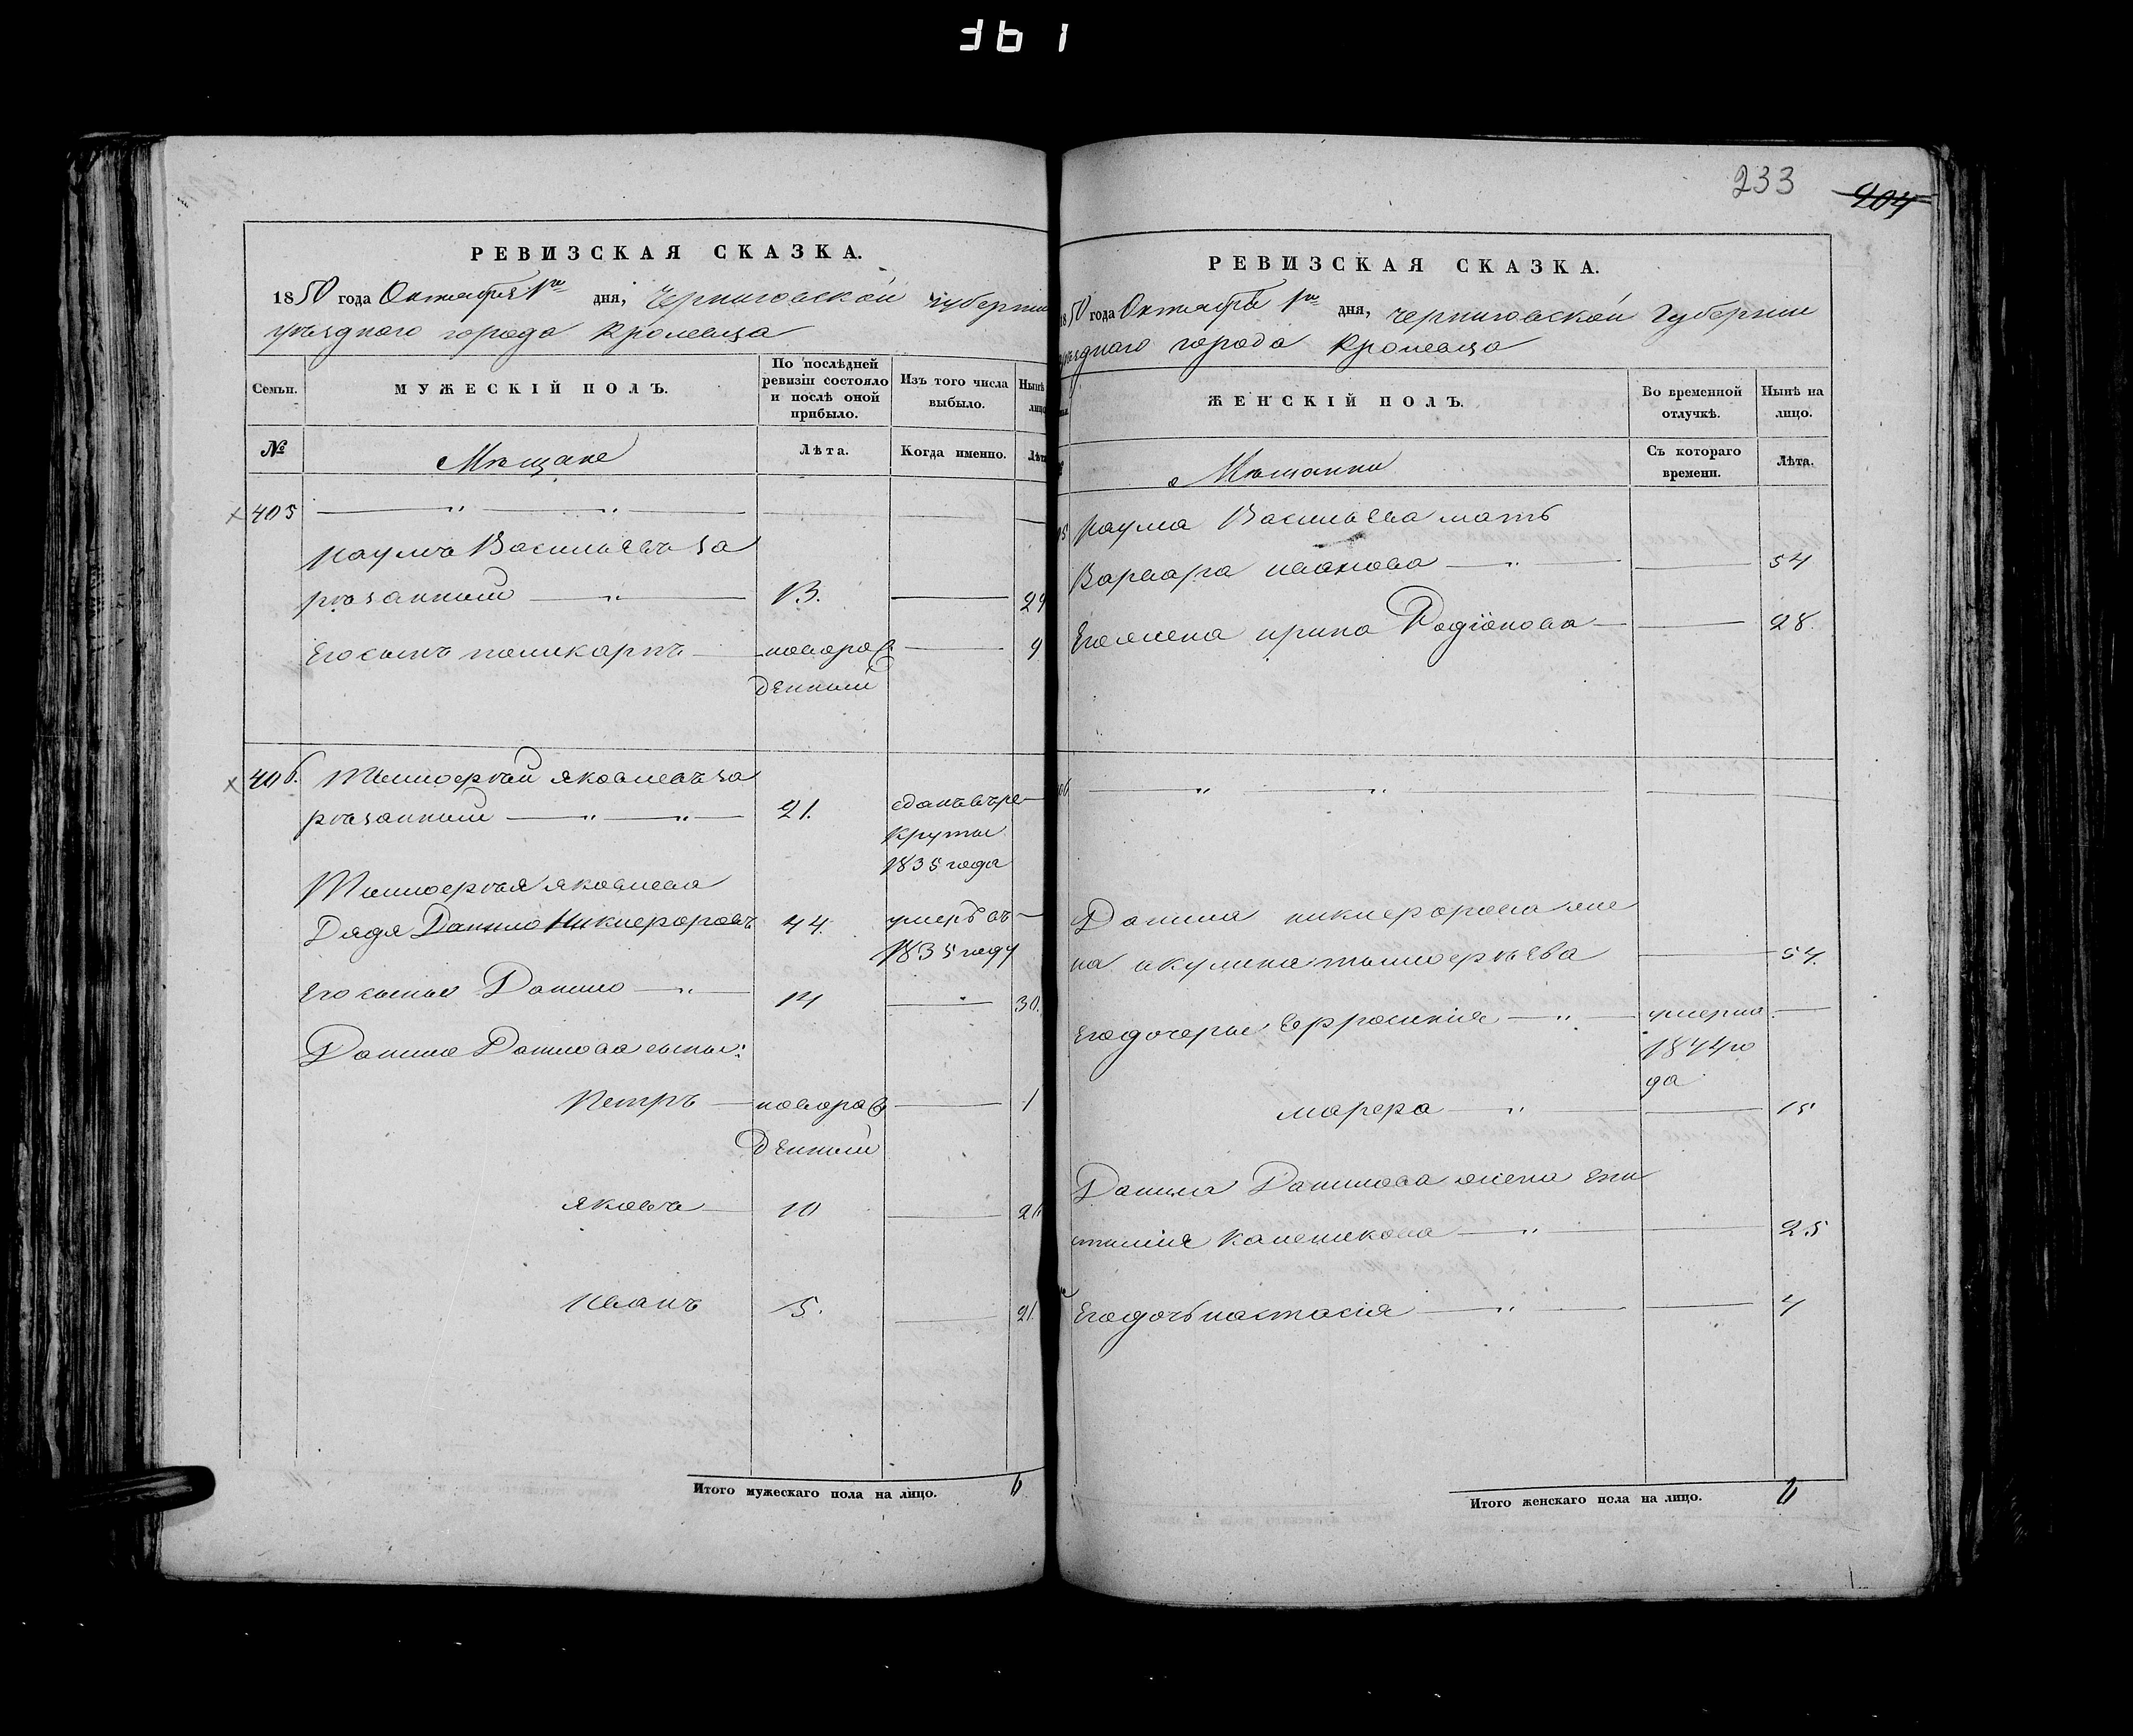 361
233 204
РЕВИЗСКАЯ СКАЗКА.
1850 года Октября 1го дня, Черниговской губернии
уѣзднаго города Кролевца
Семьи.
МУЖЕСКІЙ ПОЛЪ.
По послѣдней ревизіи состояло и послѣ оной прибыло.
Изъ того числа выбыло.
Нынѣ
лицо
№
Мѣщане
Лѣта.
Когда именно.
Лѣта
405
Наумъ Васильевъ за
рѣзанный 13. 29
Его сынъ Поликарпъ новорож 9
денный
406. Тимоѳѣй Яковлевъ за
рѣзанный 21. сданъ въ ре
круты
1835 года
Тимоѳѣя Яковлева
Дядя Данило Никифоровъ 44. умеръ въ
1835 году
Его сынья Данило 14 30.
Данила Данилова сынья:
Петръ новорож 1
денный
Яковъ 10 26
Иванъ 5. 21.
Итого мужескаго пола на лицо. 6
РЕВИЗСКАЯ СКАЗКА.
1850 года Октября 1го дня, Черниговской Губернии
уѣзднаго города Кролевца
ЖЕНСКІЙ ПОЛЪ.
Во временной отлучкѣ.
Нынѣ на лицо.
Мѣщанки
Съ котораго времени.
Лѣта.
Наума Васильева мать
Варвара Иванова 54
Его жена Ирина Радіонова 28.
Данила Никифорова же
на Акулина Тимоѳѣева 54.
Его дочерьи Ефросинія умерла
1844 го
да
Марфа 15
Данила Данилова жена Епи
стимія Калентикова 25
Его дочь Настасія 4
Итого женскаго пола на лицо. 6